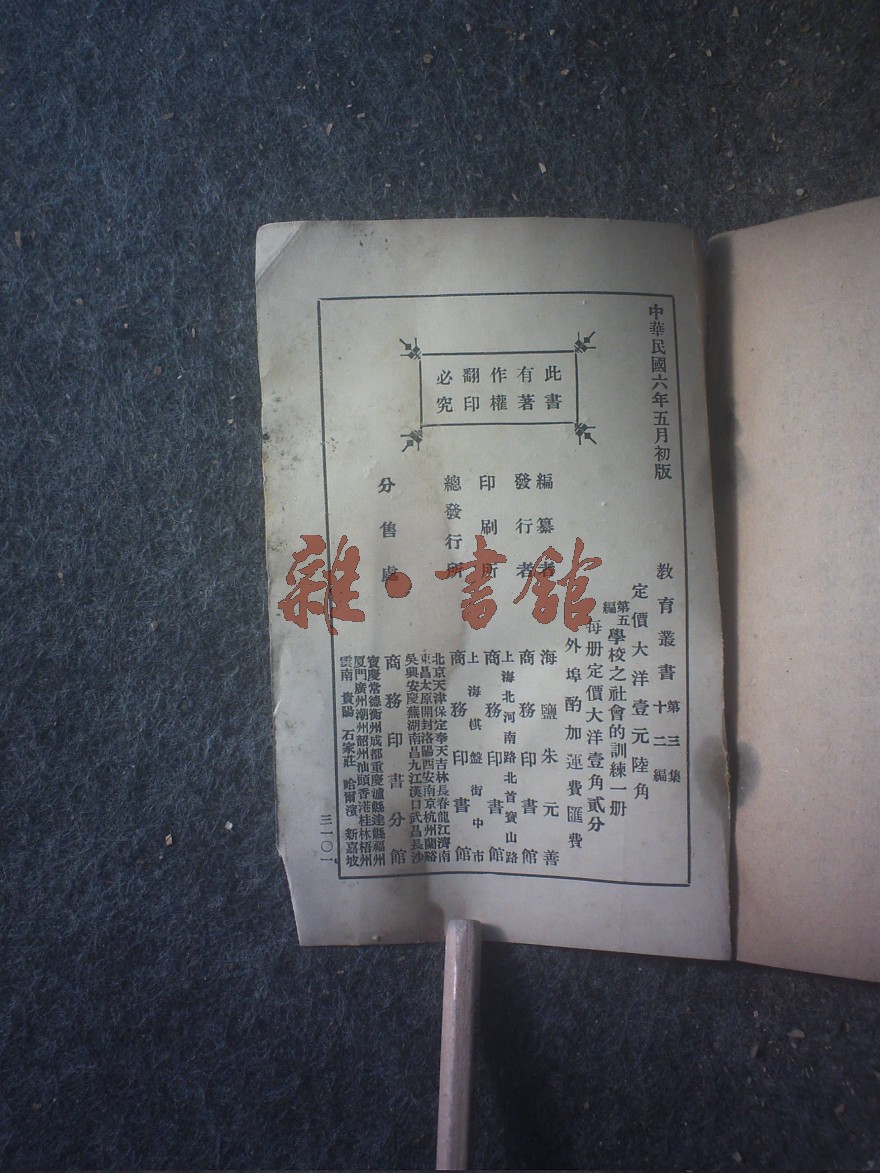 中華民國六年五月初版
教育叢書第三集十二編
定價大洋壹元陸角
第五編學校之社會的訓練一册
每册定價大洋壹角貳分
外埠酌加運費匯費
此書
有著
作權
翻印
必究
編纂者 海鹽朱元善
發行者 商務印書館
上海北河南路北首寶山路
印刷所 商務印書館
上海棋盤街中市
總發行所 商務印書館
北京天津保定奉天吉林長春龍江濟南
東昌太原開封洛陽西安南京杭州蘭谿
吳興安慶蕪湖南昌九江漢口武昌長沙
分售處 商務印書分館
寶慶常德衡州成都重慶瀘縣達縣福州
厦門廣州潮州韶州汕頭香港桂林梧州
雲南 貴陽 石家莊 哈爾濱 新嘉坡
三一〇一
雜·書館